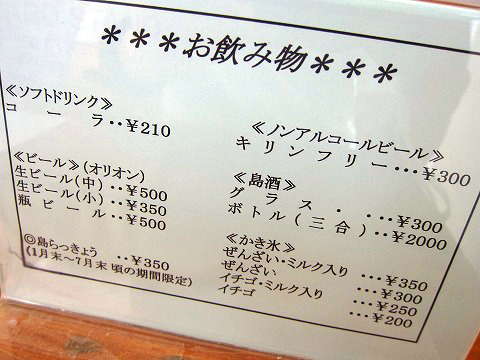 ＊＊＊お飲み物＊＊＊
≪ソフトドリンク≫
コーラ‥¥210
≪ビール≫(オリオン)
生ビール(中)‥¥500
生ビール(小)‥¥350
瓶ビール‥¥500
◎島らっきょう ‥¥350
(1月末～7月末頃の期間限定)
≪ノンアルコールビール≫
キリンフリー…¥300
≪島酒≫
グラス・…¥300
ボトル(三合)‥¥2000
≪かき氷≫
ぜんざい・ミルク入り …¥350
ぜんざい …¥300
イチゴ・ミルク入り …¥250
イチゴ …¥200